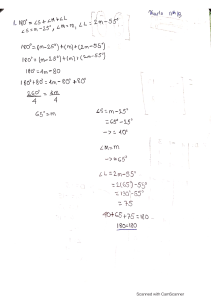 1. 180° = ∠S + ∠M + ∠L
∠S = m-25°, ∠M = m, ∠L = 2m-55°
180° = (m-25°) + (m) + (2m-55°)
180° = (m-25°) + (m) + (2m-55°)
180° = 4m-80
180° + 80° = 4m - 80° + 80°
260° = 4m
4 4
65° = m
∠S = m-25°
= 65° - 25°
-> 40°
∠M = m
-> 65°
∠L = 2m-55°
= 2(65°) - 55°
= 130° - 55°
= 75
40 + 65 + 75 = 180
180 = 180
Scanned with CamScanner